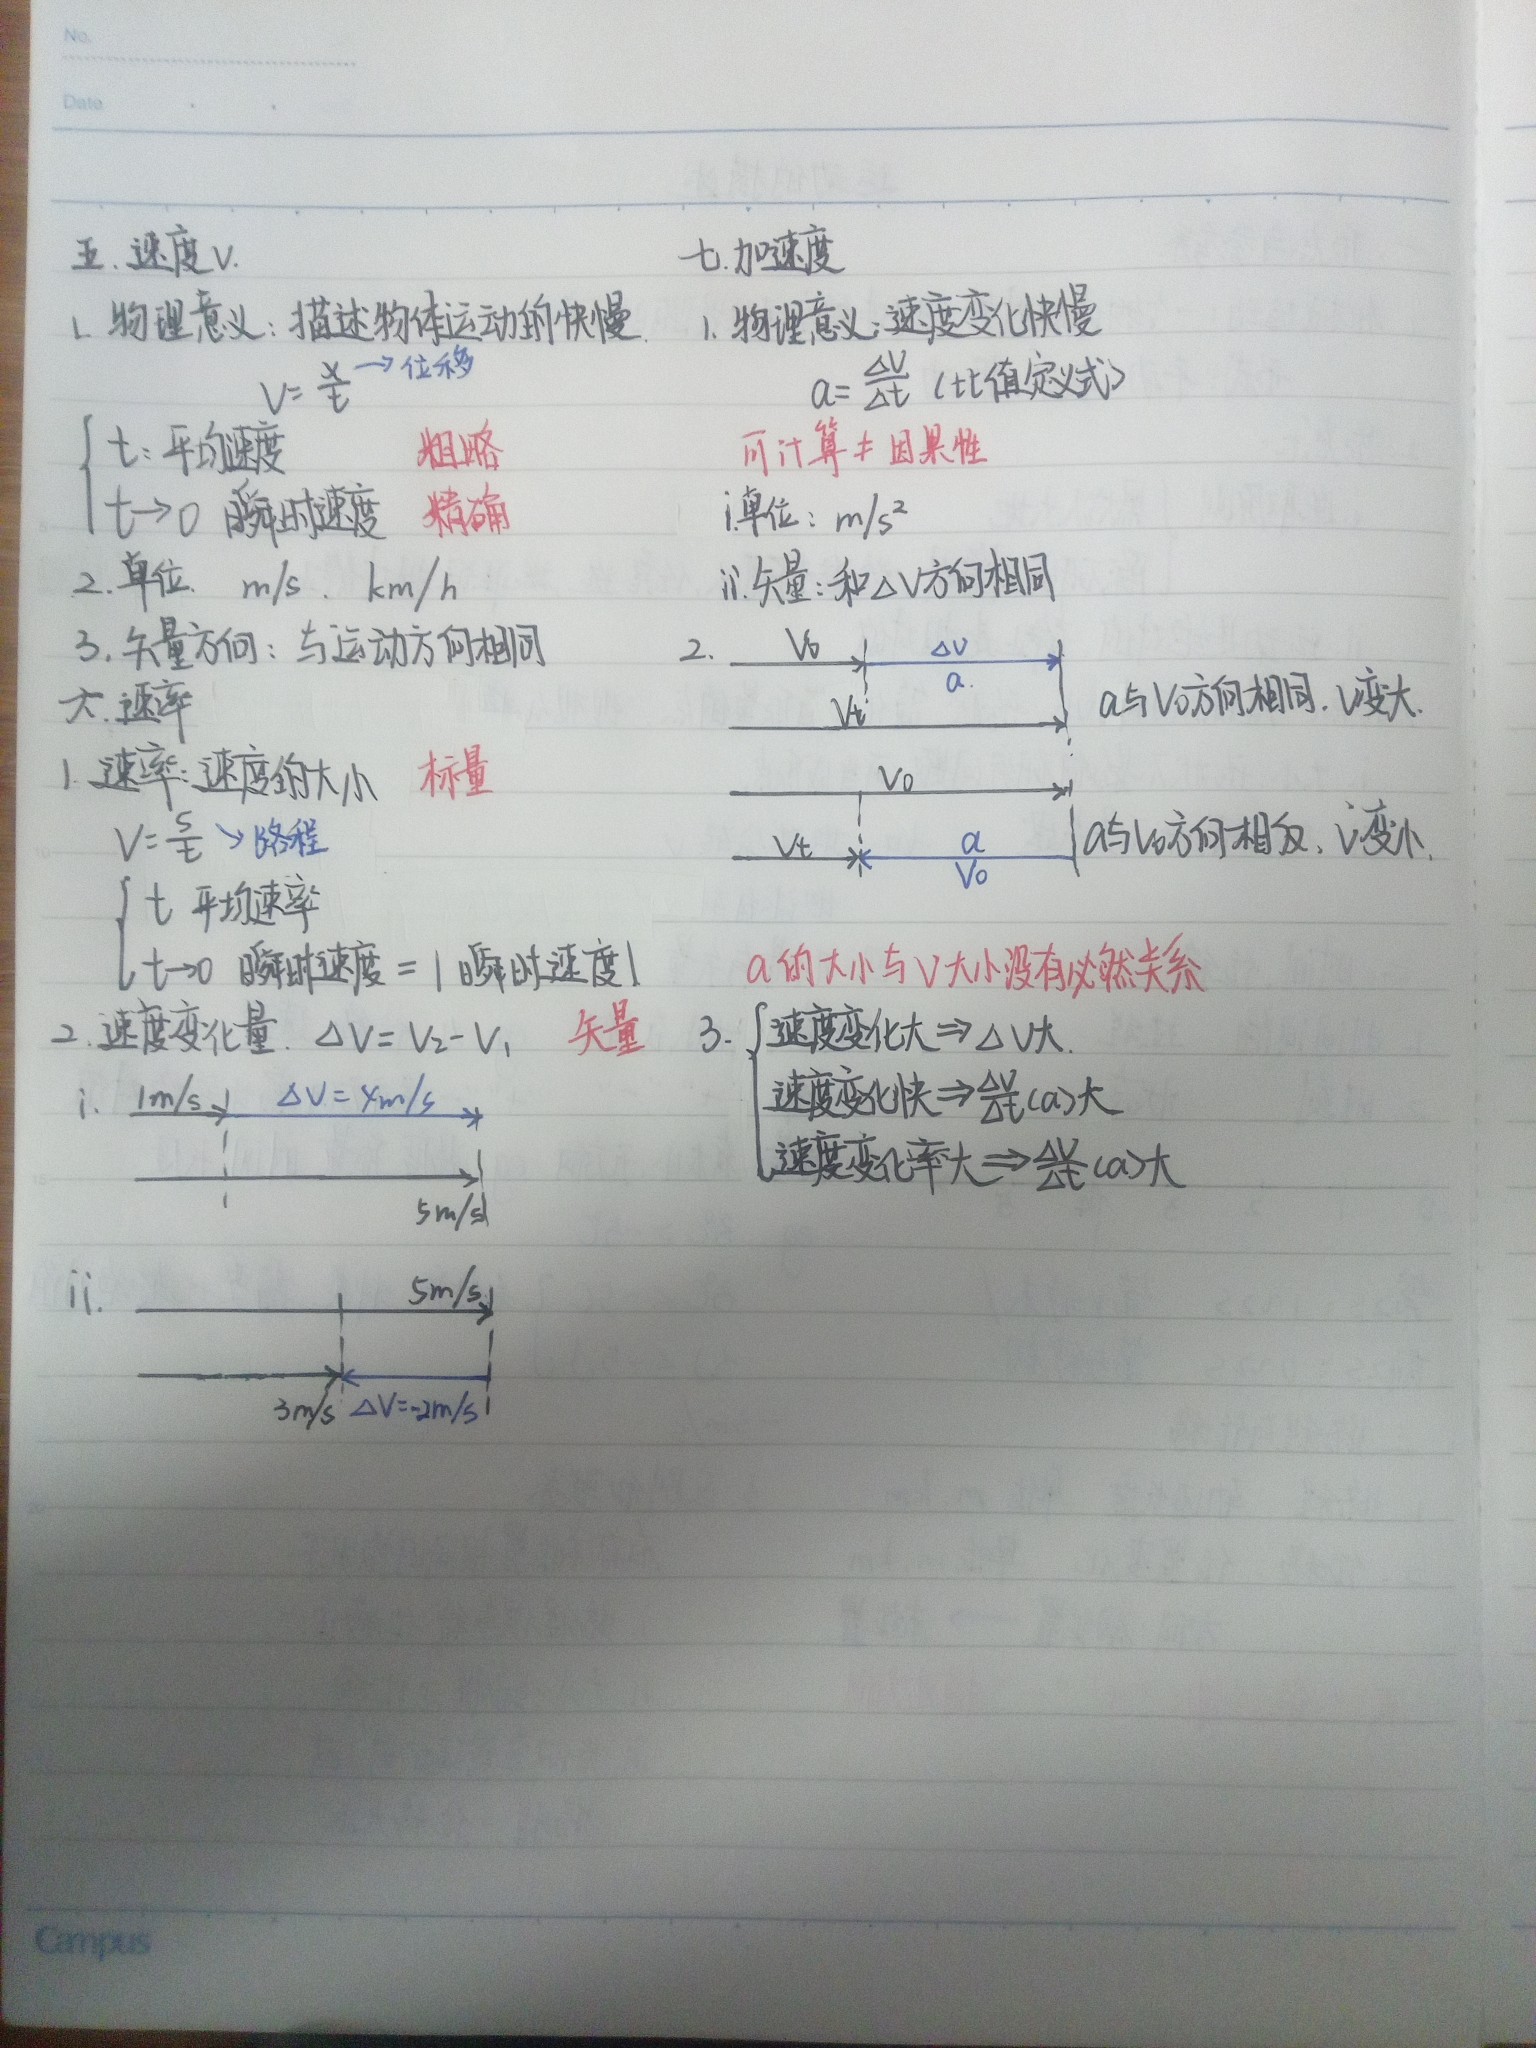 No.
Date
五.速度V.
1. 物理意义:描述物体运动的快慢.
V=x/t →位移
t:平均速度 粗略
t→0 瞬时速度 精确
2.单位. m/s . km/h
3.矢量方向:与运动方向相同
六.速率
1.速率:速度的大小 标量
V=s/t →路程
t 平均速率
t→0 瞬时速度=|瞬时速度|
2.速度变化量. △V=V₂-V₁ 矢量
i. 1m/s △V=4m/s
5m/s
ii. 5m/s
3m/s △V=-2m/s
七.加速度
1.物理意义:速度变化快慢
a=△V/△t (比值定义式)
可计算≠因果性
i.单位: m/s²
ii.矢量:和△V方向相同
2. V₀ △V
a.
Vt
a与V₀方向相同.V变大.
V₀
Vt a
V₀
a与V₀方向相反.V变小.
a的大小与V大小没有必然关系
3. 速度变化大⇒△V大.
速度变化快⇒△V/△t(a)大
速度变化率大⇒△V/△t(a)大
Campus